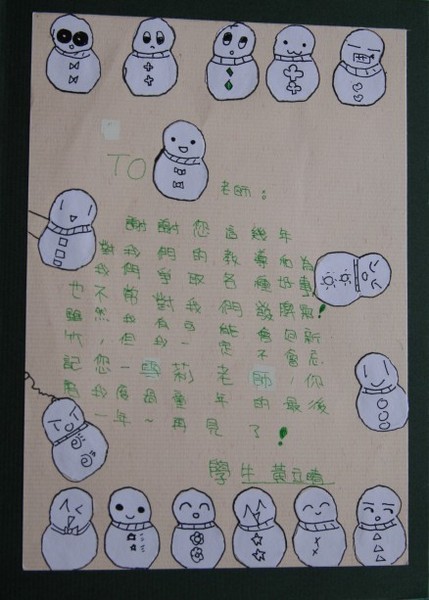 TO 老師:
謝謝您這幾年
對我們的教導和為
我們爭取各種好事,
也不常對我們發脾氣!
雖然我有可能會回新
竹,但我一定不會忘
記您—雪莉老師,你
陪我度過童年的最後
一年~再見了!
學生 黃立晴